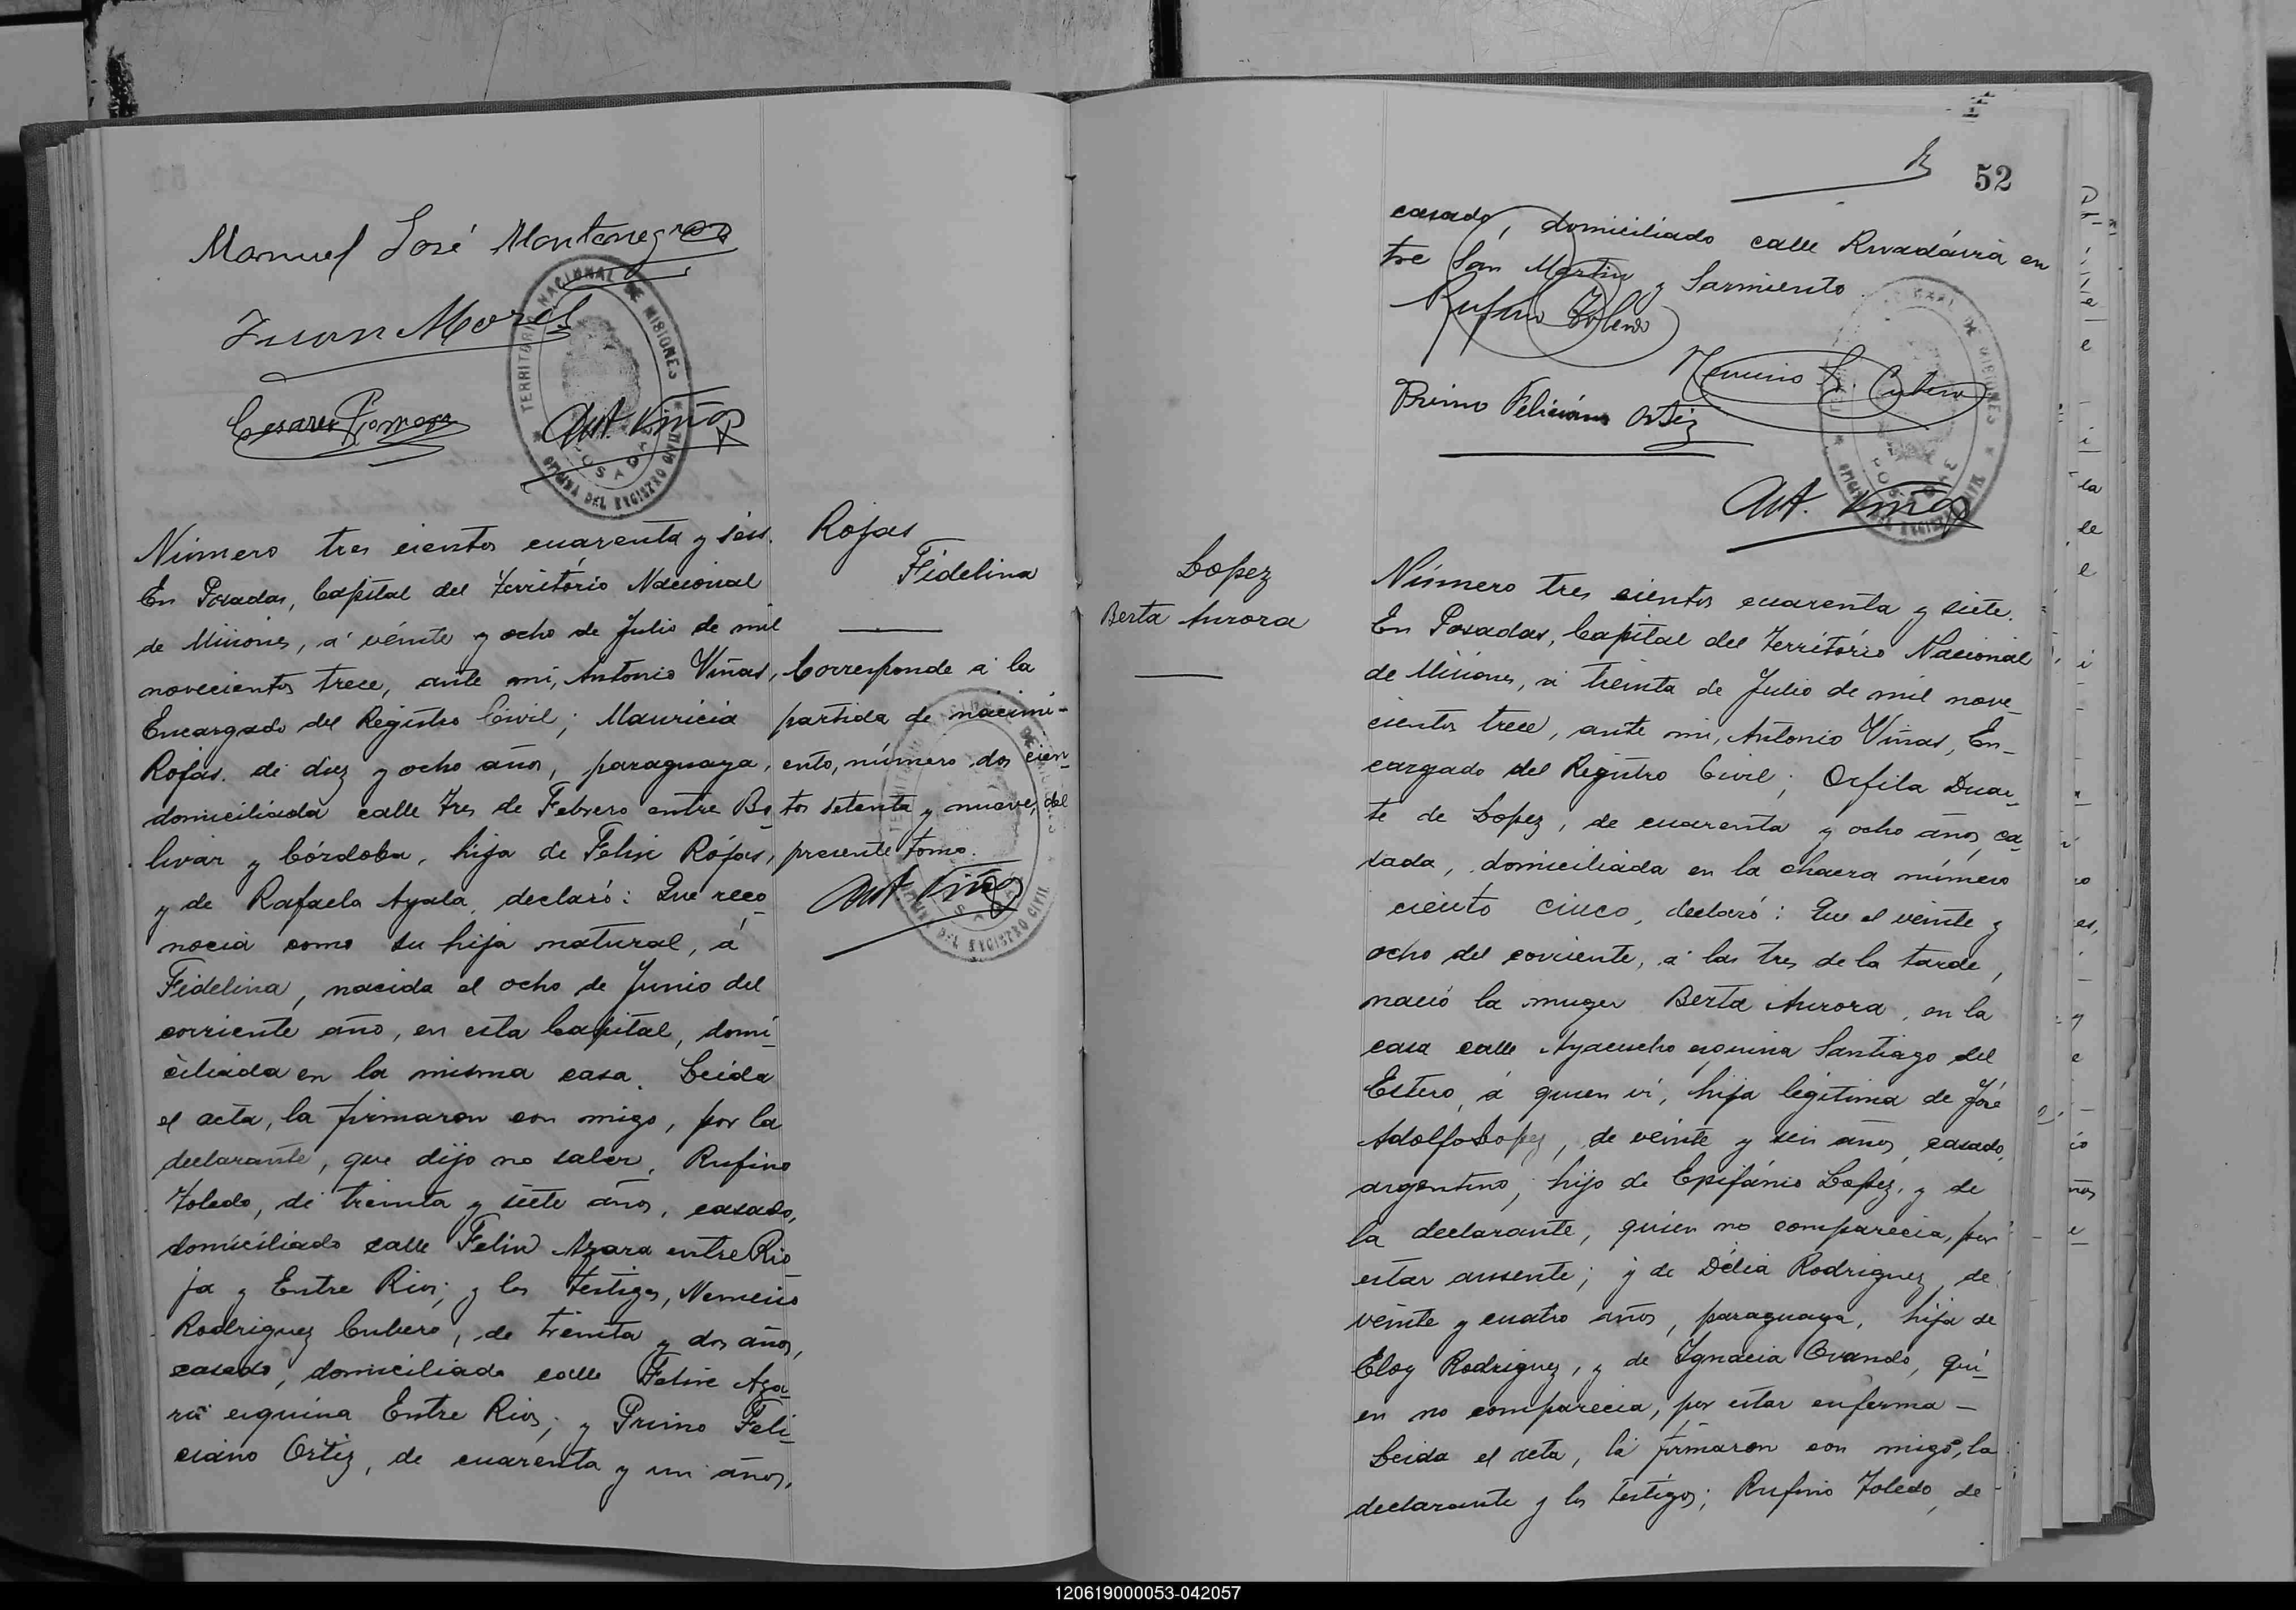 Manuel José Montenegro
Juan Morel
Cesareo
Ant. Viñas
TERRITORIO NACIONAL DE MISIONES
POSADAS
OFICINA DEL REGISTRO CIVIL
Número tres cientos cuarenta y seis.
En Posadas, Capital del Território Nacional
de Misiones, á veinte y ocho de Julio de mil
novecientos trece, ante mi, Antonio Viñas,
Encargado del Registro Civil; Mauricia
Rojas. de diez y ocho años, paraguaya,
domiciliada calle Tres de Febrero entre Bo-
livar y Córdoba, hija de Felix Rójas,
y de Rafaela Ayala, declaró: Que reco-
nocia como su hija natural, á
Fidelina, nacida el ocho de Junio del
corriente año, en esta Capital, domi-
ciliada en la misma casa. Leida
el acta, la firmaron con migo, por la
declarante, que dijo no saber, Rufino
Toledo, de treinta y siete años, casado,
domiciliado calle Felix Azara entre Rio-
ja y Entre Rios; y los testigos, Nemecio
Rodriguez Cubero, de treinta y dos años,
casado, domiciliado calle Felix Aza-
ra esquina Entre Rios; y Primo Feli-
ciano Ortiz, de cuarenta y un años,
Rojas
Fidelina
Corresponde á la
partida de nacimi-
ento, número dos cien-
tos setenta y nueve, del
presente tomo.
Ant. Viñas
52
casado, domiciliado calle Rivadávia en
tre San Martin y Sarmiento
Rufino Toledo
Nemecio R. Cubero
Primo Feliciano Ortiz
Ant. Viñas
Lopez
Berta Aurora
Número tres cientos cuarenta y siete.
En Posadas, Capital del Território Nacional
de Misiones, á treinta de Julio de mil nove-
cientos trece, ante mi, Antonio Viñas, En-
cargado del Registro Civil; Orfila Duar-
te de Lopez, de cuarenta y ocho años, ca-
sada, domiciliada en la chacra número
ciento cinco, declaró: Que el veinte y
ocho del corriente, á las tres de la tarde,
nació la muger Berta Aurora, en la
casa calle Ayacucho esquina Santiago del
Estero, á quien vi, hija legitima de José
Adolfo Lopez, de veinte y seis años, casado,
argentino, hijo de Epifánio Lopez, y de
la declarante, quien no comparecia, por
estar ausente; y de Délia Rodriguez, de
veinte y cuatro años, paraguaya, hija de
Eloy Rodriguez, y de Ignacia Ovando, qui-
en no comparecia, por estar enferma -
Leida el acta, la firmaron con migo, la
declarante y los testigos; Rufino Toledo, de
120619000053-042057